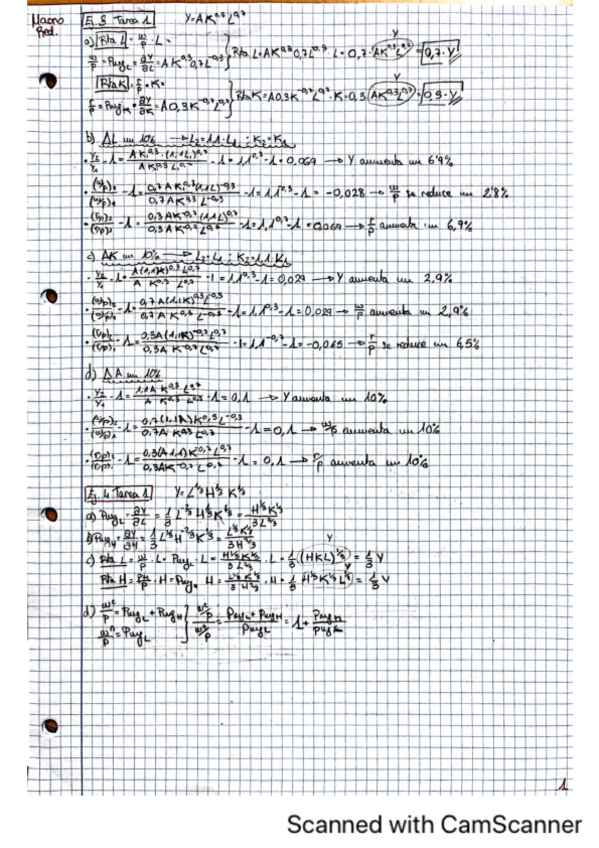 Macro
Red.
Ej. 3 Tarea 1   Y=AK^0,3 L^0,7
a) Rta L = w/p · L =
w/p = PMgL = ∂Y/∂L = AK^0,3 0,7L^-0,3 } Rta L = AK^0,3 0,7L^-0,3 · L = 0,7 · (AK^0,3 L^0,7) = 0,7·Y
Rta K = r/p · K =
r/p = PMgK = ∂Y/∂K = A0,3K^-0,7 L^0,7 } Rta K = A0,3K^-0,7 L^0,7 · K = 0,3 (AK^0,3 L^0,7) = 0,3·Y
b) ΔL un 10% → L2=1,1·L1 ; K2=K1
· Y2/Y1 - 1 = AK^0,3·(1,1L)^0,7 / AK^0,3 L^0,7 - 1 = 1,1^0,7 - 1 = 0,069 → Y aumenta un 6'9%
· (w/p)2/(w/p)1 - 1 = 0,7AK^0,3 (1,1L)^-0,3 / 0,7AK^0,3 L^-0,3 - 1 = 1,1^-0,3 - 1 = -0,028 → w/p se reduce un 2'8%
· (r/p)2/(r/p)1 - 1 = 0,3AK^-0,7 (1,1L)^0,7 / 0,3AK^-0,7 L^0,7 - 1 = 1,1^0,7 - 1 = 0,069 → r/p aumenta un 6,9%
c) ΔK un 10% → L2=L1 ; K2=1,1·K1
· Y2/Y1 - 1 = A(1,1K)^0,3 L^0,7 / A K^0,3 L^0,7 - 1 = 1,1^0,3 - 1 = 0,029 → Y aumenta un 2,9%
· (w/p)2/(w/p)1 - 1 = 0,7A(1,1K)^0,3 L^-0,3 / 0,7A K^0,3 L^-0,3 - 1 = 1,1^0,3 - 1 = 0,029 → w/p aumenta un 2,9%
· (r/p)2/(r/p)1 - 1 = 0,3A(1,1K)^-0,7 L^0,7 / 0,3A K^-0,7 L^0,7 - 1 = 1,1^-0,7 - 1 = -0,065 → r/p se reduce un 6,5%
d) ΔA un 10%
· Y2/Y1 - 1 = 1,1A K^0,3 L^0,7 / A K^0,3 L^0,7 - 1 = 0,1 → Y aumenta un 10%
· (w/p)2/(w/p)1 - 1 = 0,7(1,1A)K^0,3 L^-0,3 / 0,7A K^0,3 L^-0,3 - 1 = 0,1 → w/p aumenta un 10%
· (r/p)2/(r/p)1 - 1 = 0,3(A1,1)K^-0,7 L^0,7 / 0,3AK^-0,7 L^0,7 - 1 = 0,1 → r/p aumenta un 10%
Ej. 4 Tarea 1   Y=L^1/3 H^1/3 K^1/3
a) PMgL = ∂Y/∂L = 1/3 L^-2/3 H^1/3 K^1/3 = H^1/3 K^1/3 / 3L^2/3
b) PMgH = ∂Y/∂H = 1/3 L^1/3 H^-2/3 K^1/3 = L^1/3 K^1/3 / 3H^2/3
c) Rta L = w/p · L = PMgL · L = H^1/3 K^1/3 / 3L^2/3 · L = 1/3 (HKL)^1/3 = 1/3 Y
Rta H = PH/P · H = PMgH · H = L^1/3 K^1/3 / 3H^2/3 · H = 1/3 H^1/3 K^1/3 L^1/3 = 1/3 Y
d) w^c/p = PMgL + PMgH
w^n/p = PMgL } w^c/p / w^n/p = PMgL + PMgH / PMgL = 1 + PMgH / PMgL
1
Scanned with CamScanner